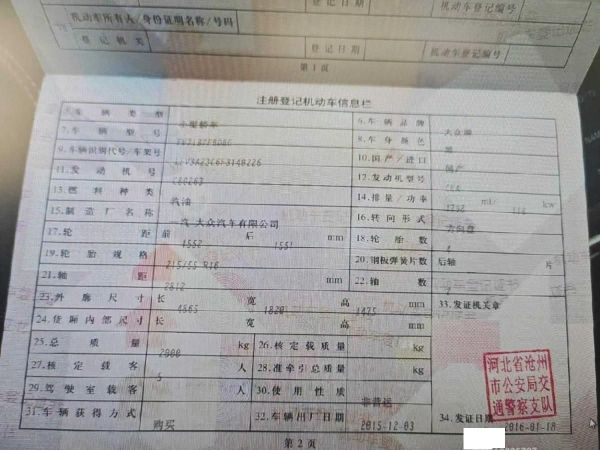 登记日期 机动车登记编号
机动车所有人/身份证明名称/号码
登记机关 登记日期 机动车登记编号
第1页
注册登记机动车信息栏
5.车辆类型 小型轿车 6.车辆品牌 大众牌
7.车辆型号 8.车身颜色 黑
9.车辆识别代号/车架号 10.国产/进口 国产
11.发动机号 12.发动机型号
13.燃料种类 汽油 14.排量/功率 ml/ kw
15.制造厂名称 一汽-大众汽车有限公司 16.转向形式 方向盘
17.轮距 前 1552 后 1551 mm 18.轮胎数 4
19.轮胎规格 215/55 R16 20.钢板弹簧片数 后轴 片
21.轴距 2812 mm 22.轴数 2
23.外廓尺寸 长 4865 宽 1820 高 1475 mm 33.发证机关章
24.货厢内部尺寸 长 宽 高 mm
25.总质量 kg 26.核定载质量 kg
27.核定载客 5 人 28.准牵引总质量 kg
29.驾驶室载客 人 30.使用性质 非营运
31.车辆获得方式 购买 32.车辆出厂日期 2015-12-03 34.发证日期 2016-01-18
河北省沧州
市公安局交
通警察支队
第2页